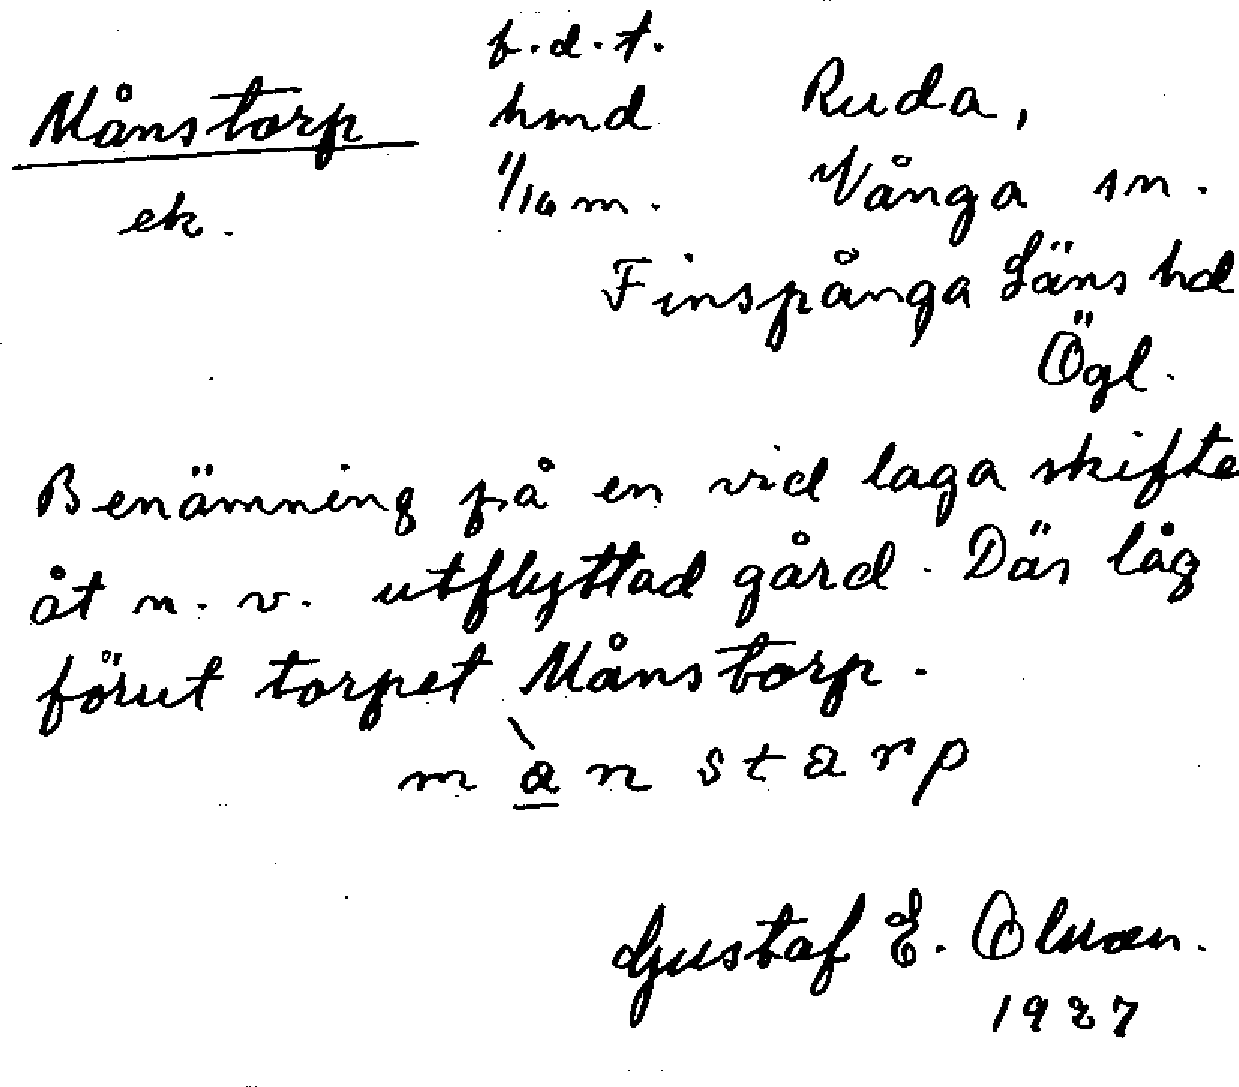 f.d.t.
Månstorp hmd Ruda,
ek. 1/16 m. Vånga sn.
Finspånga Läns hd
Ögl.
Benämning på en vid laga skifte
åt n.v. utflyttad gård. Där låg
förut torpet Månstorp.
mànstarp
Gustaf E. Olsson.
1927